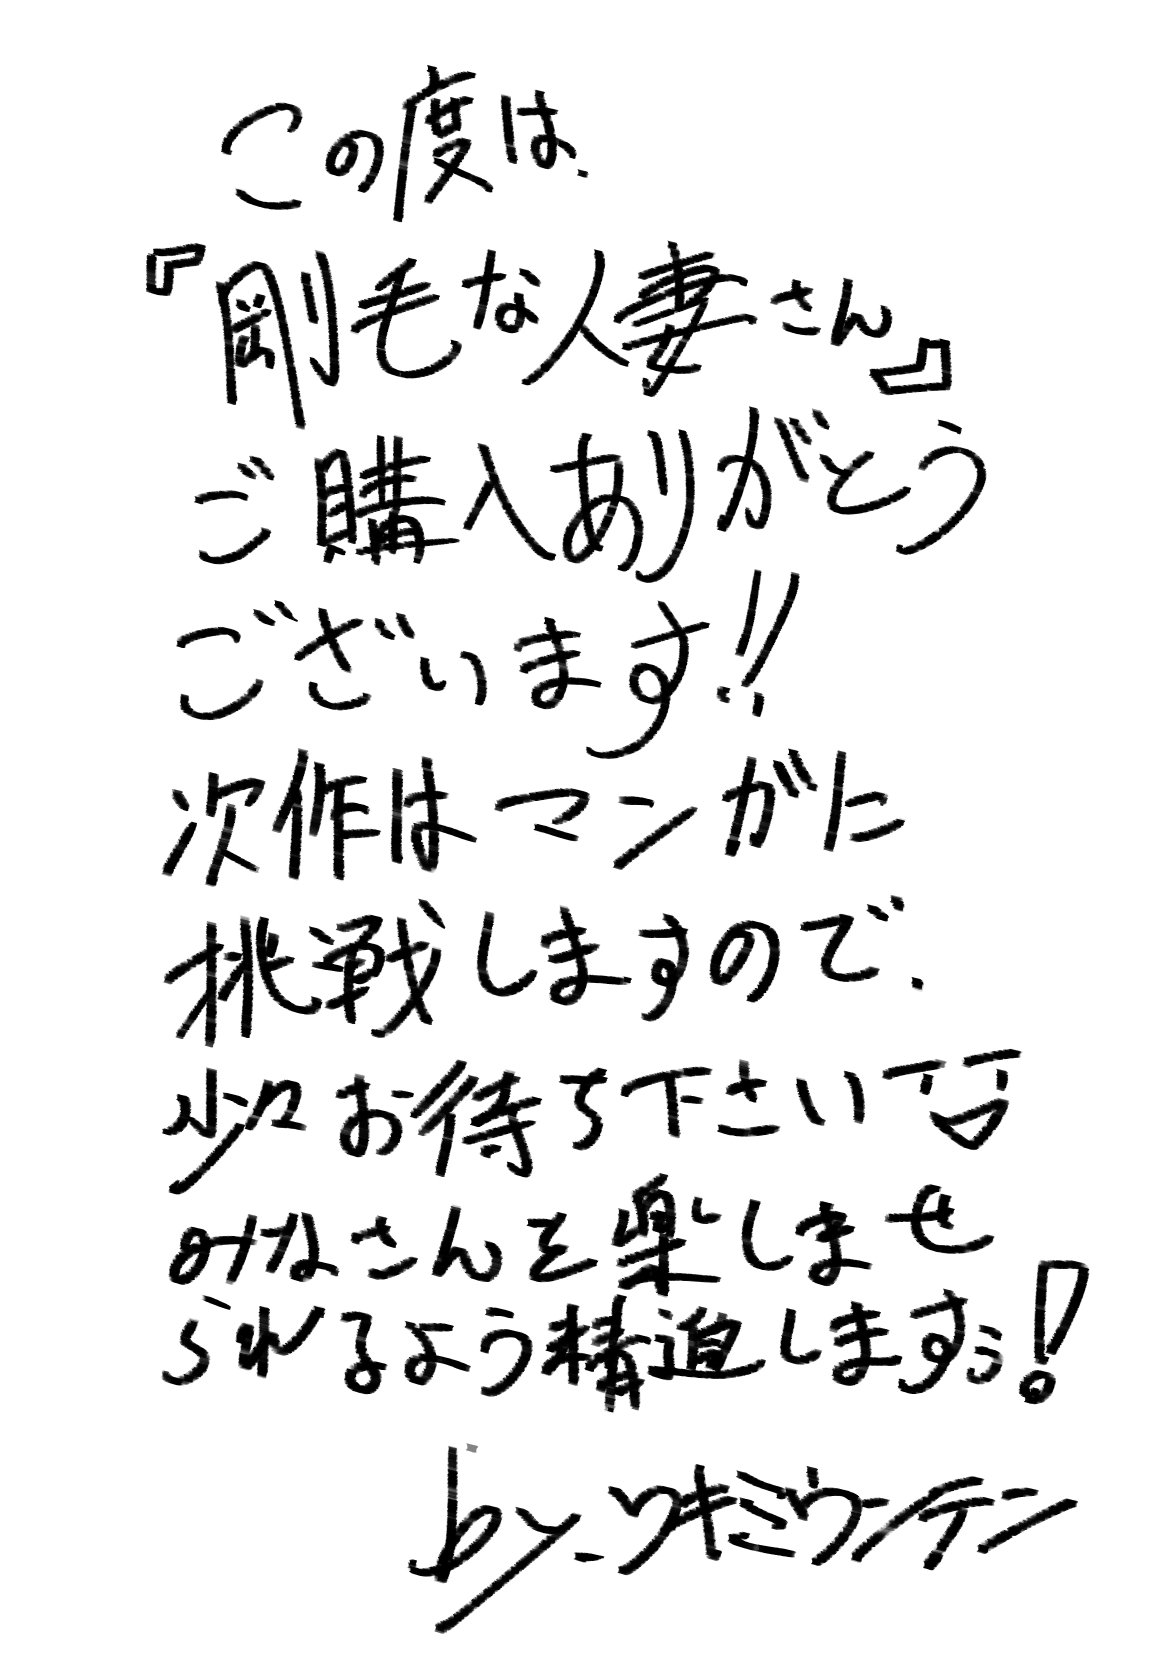 この度は、
『剛毛な人妻さん』
ご購入ありがとう
ございます!!
次作はマンガに
挑戦しますので、
少々お待ち下さい
みなさんを楽しませ
られるよう精進しますぅ!
by.ワキミウンテン